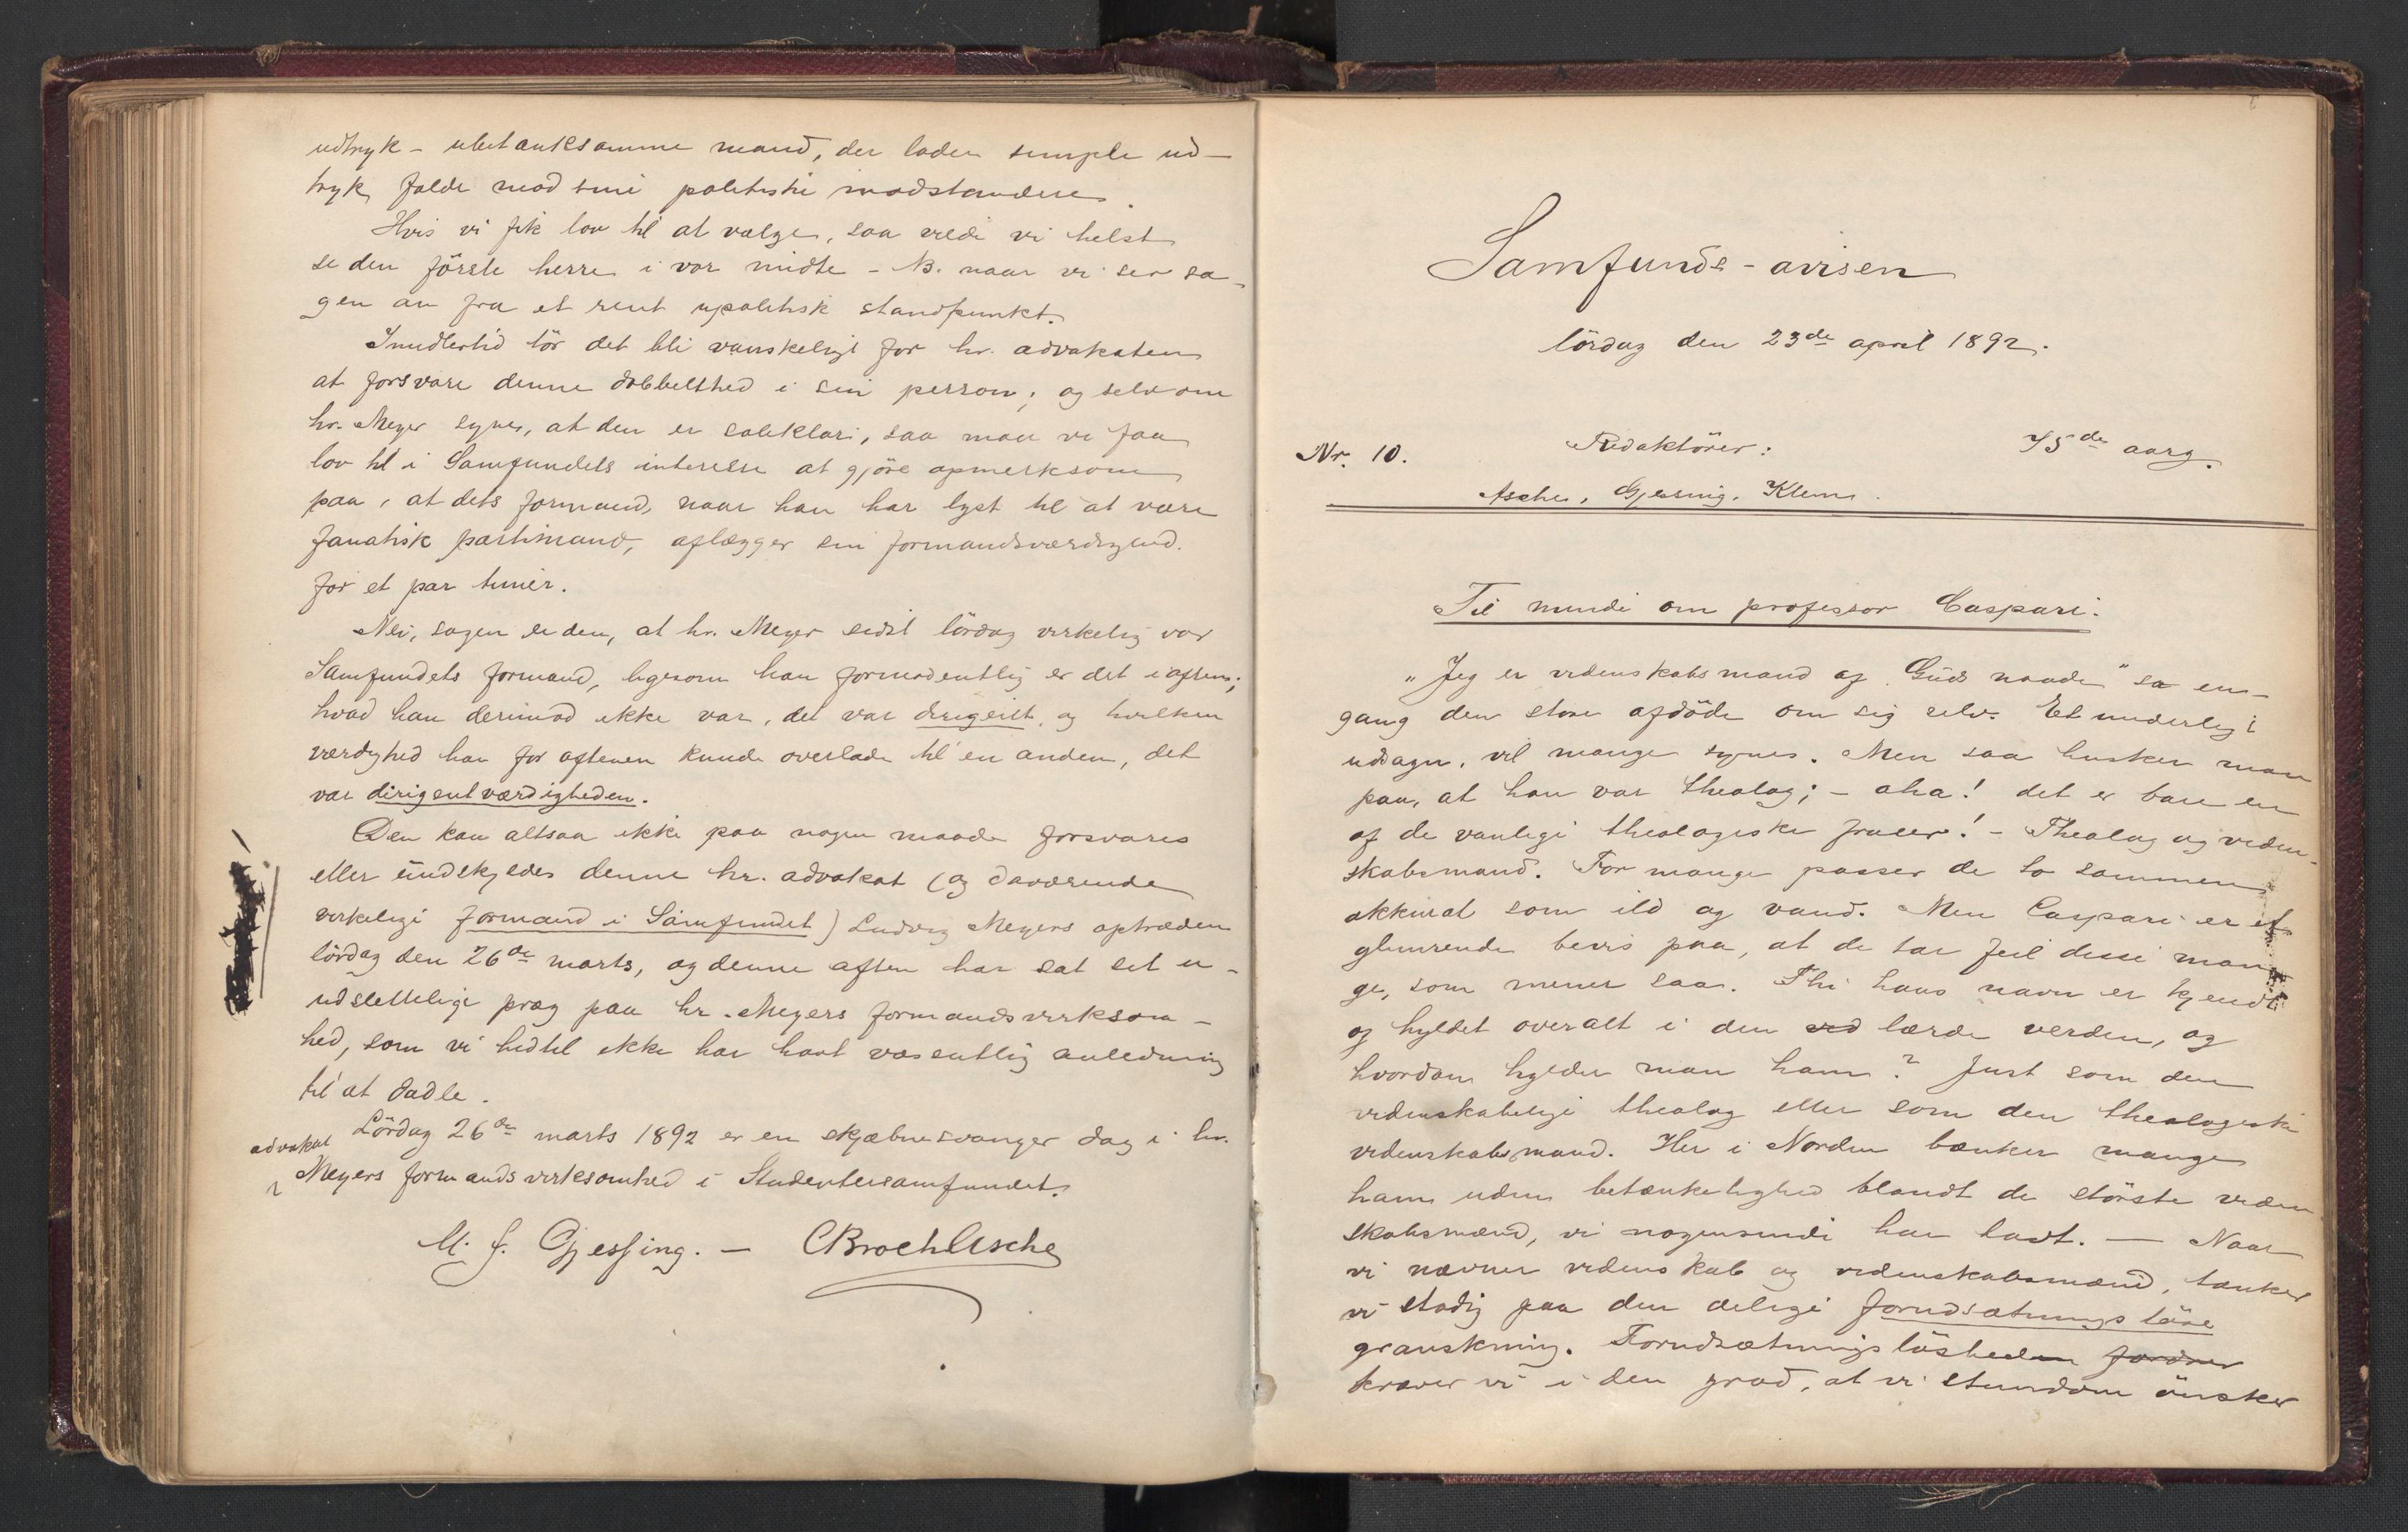 udtryk - ubetænksomme mand, der lader simple ud-
tryk falde mod sine politiske modstandere.
Hvis vi fik lov til at vælge, saa vilde vi helst
se den förste herre i vor midte - NB. naar vi ser sa-
gen an fra et rent upolitisk standpunkt.
Imidlertid tör det bli vanskeligt for hr. advokaten
at forsvare denne dobbelthed i sin person; og selv om
hr. Meyer synes, at den er soleklar, saa maa vi faa
lov til i Samfundets interesse at gjöre opmerksom
paa, at dets formand, naar han har lyst til at være
fanatisk partimand, aflægger sin formandsværdighed
for et par timer.
Nei, sagen er den, at hr. Meyer sidst lördag virkelig var
Samfundets formand, ligesom han formodentlig er det iaften;
hvad han derimod ikke var, det var dirigent, og hvilken
værdighed han for aftenen kunde overlade til en anden, det
var dirigentværdigheden.
Den kan altsaa ikke paa nogen maade forsvares
eller undskyldes denne hr. advokat (og daværende
virkelige formand i Samfundet) Ludvig Meyers optræden
lördag den 26de marts, og denne aften har sat sit u-
udslettelige præg paa hr. Meyers formandsvirksom-
hed, som vi hidtil ikke har havt væsentlig anledning
til at dadle.
Lördag 26de marts 1892 er en skjæbnesvanger dag i hr.
advokat
Meyers formandsvirksomhed i Studentersamfundet.
M. J. Gjessing. - CBrochAsche
Samfunds-avisen
lördag den 23de april 1892.
Nr. 10.
Redaktörer:
75de aarg.
Asche, Gjessing, Klem.
Til minde om professor Caspari.
"Jeg er videnskabsmand af Guds naade" sa en-
gang den store afdöde om sig selv. Et underligt
udsagn, vil mange synes. Men saa husker man
paa, at han var theolog; - aha! det er bare en
af de vanlige theologiske fraser! - Theolog og viden-
skabsmand. For mange passer de to sammen
akkurat som ild og vand. Men Caspari er et
glimrende bevis paa, at de tar feil disse man-
ge, som mener saa. Thi hans navn er kjendt
og hyldet overalt i den vid lærde verden, og
hvordan hylder man ham? Just som den
videnskabelige theolog eller som den theologiske
videnskabsmand. Her i Norden bænker mange
ham uden betænkelighed blandt de störste viden
skabsmænd, vi nogensinde har havt. - Naar
vi nævner videnskab og videnskabsmænd, tænker
vi stadig paa den deilige forudsætningslöse
granskning. Forudsætningslösheden fordrer
kræver vi i den grad, at vi stundom önsker